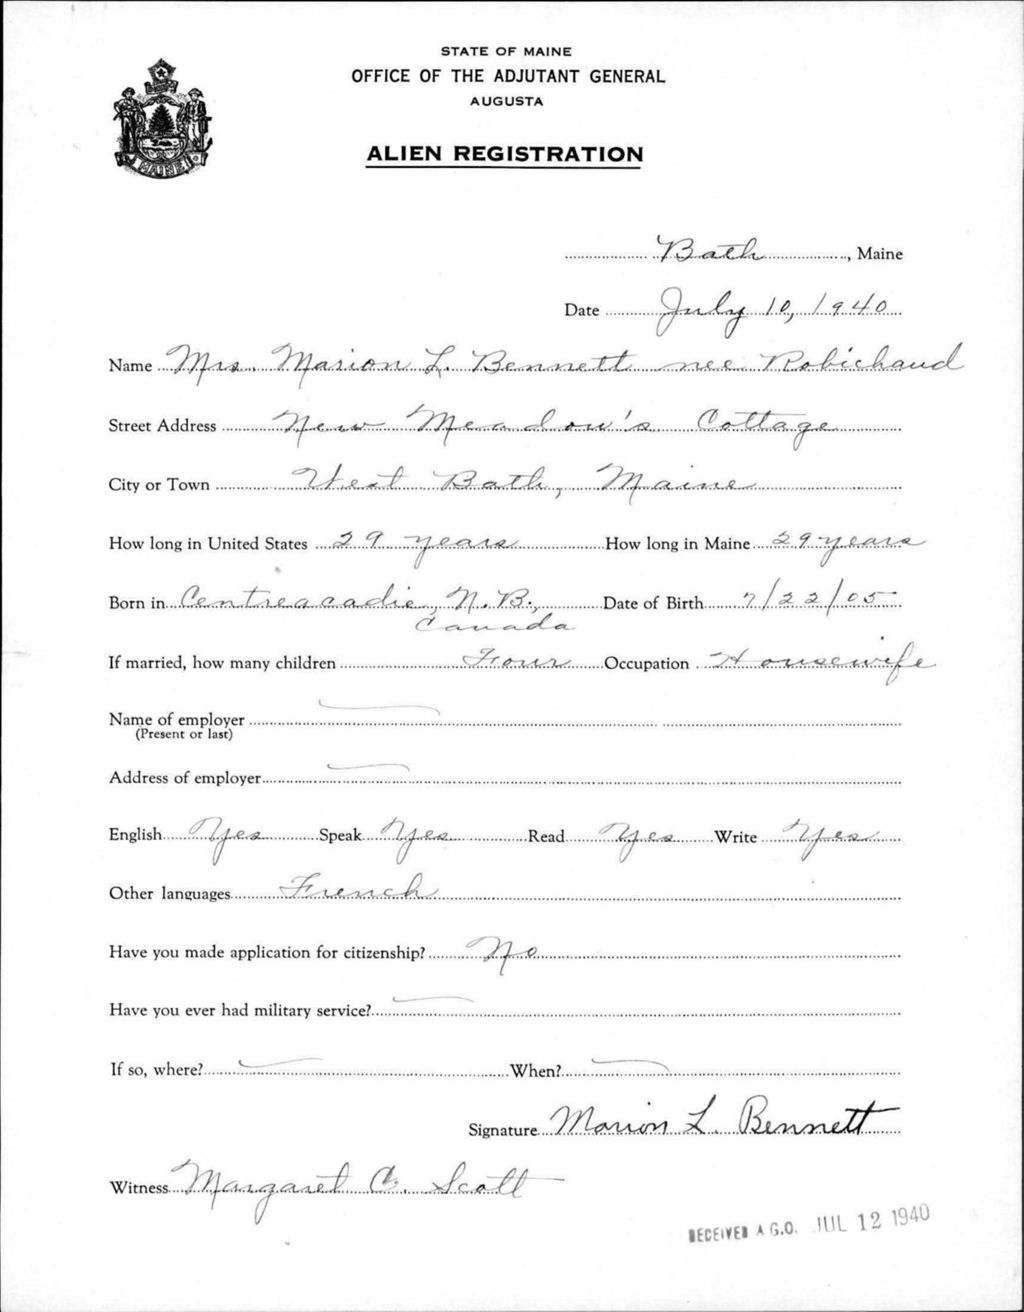 STATE OF MAINE
OFFICE OF THE ADJUTANT GENERAL
AUGUSTA
ALIEN REGISTRATION
MAINE
Bath, Maine
Date July 10, 1940
Name Mrs. Marion L. Bennett nee Robichaud
Street Address New Meadow's Cottage
City or Town West Bath, Maine
How long in United States 29 years How long in Maine 29 years
Born in Centreacadie, N.B., Date of Birth 7/22/05
Canada
If married, how many children Four Occupation Housewife
Name of employer
(Present or last)
Address of employer
English Yes Speak Yes Read Yes Write Yes
Other languages French
Have you made application for citizenship? No
Have you ever had military service?
If so, where? When?
Signature Marion L. Bennett
Witness Margaret C. Scott
RECEIVED A.G.O. JUL 12 1940